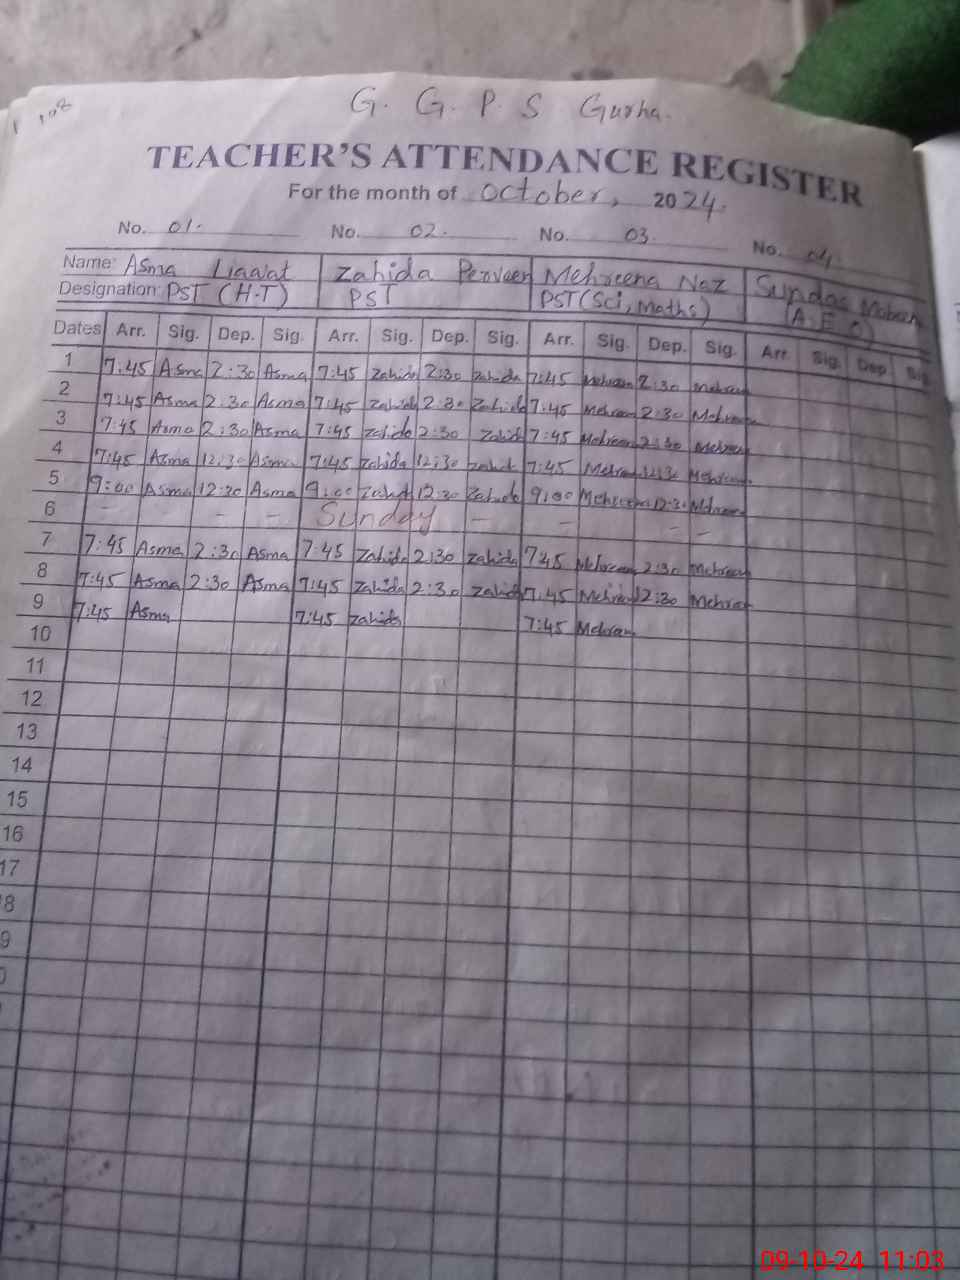 G. G. P. S Gurha.
TEACHER'S ATTENDANCE REGISTER
For the month of October, 2024.
No. 01. No. 02. No. 03. No. 04.
Name: Asma Liaqat Zahida Perveen Mehreena Naz Sundas Mobeen
Designation: PST (H.T) PST PST (Sci, Maths) (A.E.O)
Dates Arr. Sig. Dep. Sig. Arr. Sig. Dep. Sig. Arr. Sig. Dep. Sig. Arr. Sig. Dep Sig
1 7:45 Asma 2:30 Asma 7:45 Zahida 2:30 Zahida 7:45 Mehreen 2:30 Mehreen
2 7:45 Asma 2:30 Asma 7:45 Zahida 2:30 Zahida 7:45 Mehreen 2:30 Mehreen
3 7:45 Asma 2:30 Asma 7:45 Zahida 2:30 Zahida 7:45 Mehreen 2:30 Mehreen
4 7:45 Asma 12:30 Asma 7:45 Zahida 12:30 Zahida 7:45 Mehreen 12:30 Mehreen
5 9:00 Asma 12:30 Asma 9:00 Zahida 12:30 Zahida 9:00 Mehreen 12:30 Mehreen
6 - - - - Sunday - - - -
7 7:45 Asma 2:30 Asma 7:45 Zahida 2:30 Zahida 7:45 Mehreen 2:30 Mehreen
8 7:45 Asma 2:30 Asma 7:45 Zahida 2:30 Zahida 7:45 Mehreen 2:30 Mehreen
9 7:45 Asma 7:45 Zahida 7:45 Mehreen
10
11
12
13
14
15
16
17
8
9
09-10-24 11:03